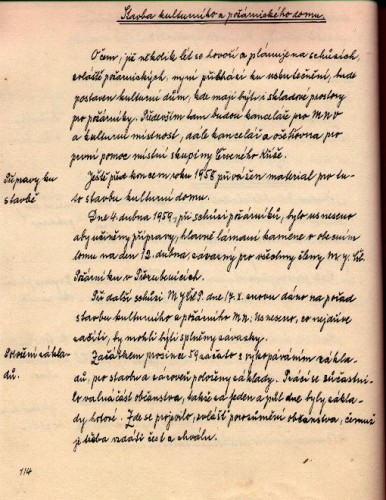 Stavba kulturního a požárnického domu.
O čem, již několik let se hovoří a plánuje na schůzích,
zvláště požárnických, nyní přichází ku uskutečnění, bude
postaven kulturní dům, kde mají býti i skladové prostory
pro požárníky. Především tam budou kanceláře pro M N V
a kulturní místnost, dále kancelář a ošetřovna pro
první pomoc místní skupiny Červeného Kříže.
Přípravy ku
stavbě
Ještě před koncem roku 1958 přivážen materiál pro tu-
to stavbu kulturního domu.
Dne 4. dubna 1959, při schůzi požárníků, bylo usneseno
aby učiněny přípravy, hlavně lámání kamene v obecním
lomu na den 12. dubna závazný pro všechny členy M. J. Čs.
Požárníků v
Při další schůzi M J Č S P. dne 17. X. znovu dáno na pořad
stavbu kulturního a požárního M. N. Usneseno, co nejdříve
začíti, by mohli býti splněny závazky.
Položení zákla-
dů.
Začátkem prosince 59 začato s vykopáváním zákla-
dů, pro stavbu a zároveň položeny základy. Prací se zúčastni-
lo valná část občanstva, takže za jeden a půl dne byly zákla-
dy hotové. Zde se projevilo, zvláště porozumění občanstva, čemuž
je třeba vzdáti čest a chválu.
114